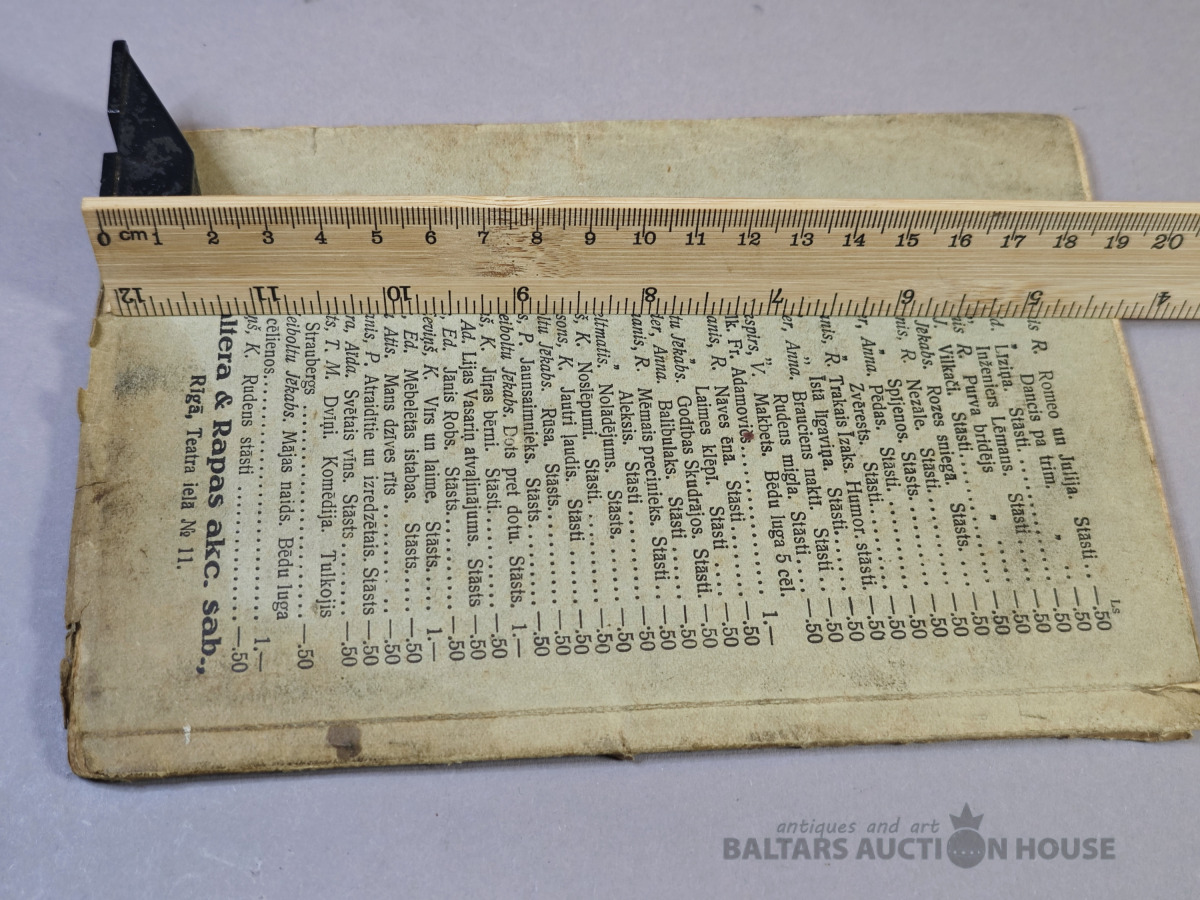 0 cm 1 2 3 4 5 6 7 8 9 10 11 12 13 14 15 16 17 18 19 20
12 11 10 9 8 7 6 5 4
Ls
R. Romeo un Julija. Stāsti . . —.50
Dancis pa trim. „ —.50
„ Līziņa. Stāsti . . . —.50
Inženiers Lēmans. Stāsti . . —.50
R. Purva bridējs „ —.50
J. Vilkači. Stāsti . . . —.50
R. Rozes sniegā. Stāsts. —.50
Jēkabs. Nezāle. Stāsti . . . —.50
R. Spijenos. Stāsts. . . . —.50
„ Pēdas. Stāsti . . . —.50
Anna. Zvērests. Stāsti . . . —.50
„ Trakais Izaks. Humor. stāsti. —.50
R. Īsta līgaviņa. Stāsti . . . —.50
„ Brauciens naktī. Stāsti . . —.50
Anna. Rudens migla. Stāsti . . . —.50
V. Makbets. Bēdu luga 5 cēl. 1.—
Fr. Adamovičs. . . . —.50
R. Nāves ēnā. Stāsti . . . —.50
„ Laimes klēpī. Stāsti . . . —.50
Jēkabs. Godības Skudrājos. Stāsti. —.50
Anna. Balibulaks. Stāsti . . . —.50
R. Mēmais precinieks. Stāsti . . —.50
„ Aleksis. Stāsti . . . —.50
Nolādējums. Stāsts. . . . —.50
K. Noslēpumi. Stāsti . . . —.50
K. Jautri ļaudis. Stāsti . . . —.50
Jēkabs. Rūsa. Stāsts. . . . —.50
P. Jaunsaimnieks. Stāsts. . . . —.50
Jēkabs. Dots pret dotu. Stāsts. 1.—
K. Jūras bērni. Stāsti. . . . —.50
Ad. Lijas Vasariņ atvaļinājums. Stāsts —.50
Ed. Jānis Robs. Stāsts. . . . —.50
K. Vīrs un laime. Stāsts. . . 1.—
Ed. Mēbelētas istabas. Stāsts. . . —.50
Atis. Mans dzīves rīts . . . —.50
P. Atraidītie un izredzētais. Stāsts —.50
Aīda. Svētais vīns. Stāsts . . . —.50
T. M. Dviņi. Komēdija. Tulkojis
Straubergs . . . —.50
Jēkabs. Mājas naids. Bēdu luga
cēlienos. . . . 1.—
K. Rudens stāsti . . . —.50
& Rapas akc. sab.,
Rīgā, Teatra ielā № 11.
antiques and art
BALTARS AUCTION HOUSE